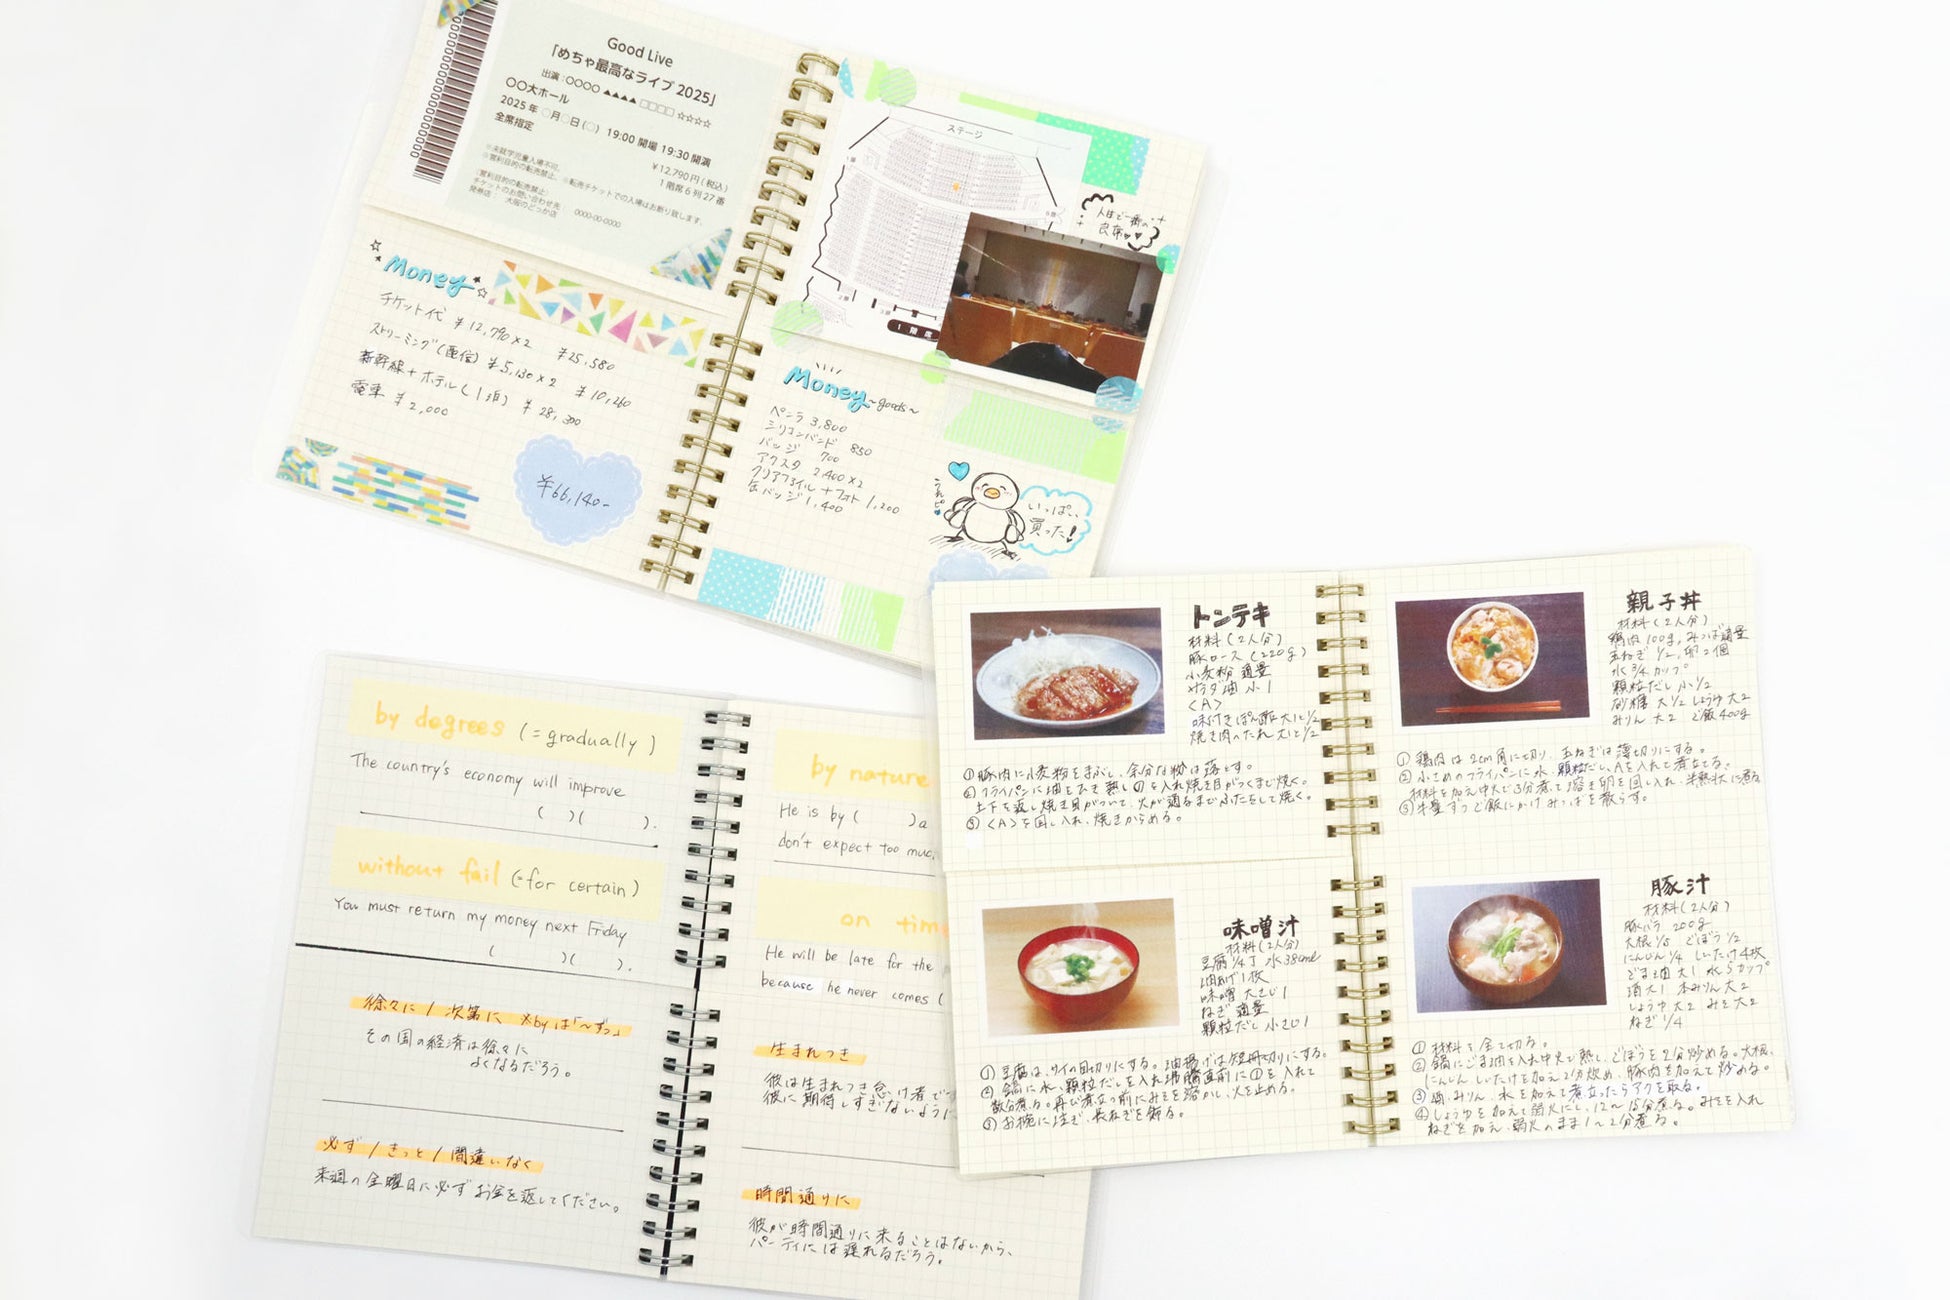 Good Live
「めちゃ最高なライブ 2025」
出演：○○○○ ▲▲▲▲ □□□□ ☆☆☆☆
○○大ホール
2025年 ○月○日(○) 19:00 開場 19:30 開演
全席指定
￥12,790円(税込)
1階席6列27番
※未就学児童入場不可。
※営利目的の転売禁止。※転売チケットでの入場はお断り致します。
(営利目的の転売禁止)
チケットのお問い合わせ先
発券店： 大阪のどっか店 0000-00-0000
Money
チケット代 ￥12,790×2 ￥25,580
ストリーミング(配信) ￥5,130×2 ￥10,260
新幹線+ホテル(1泊) ￥28,300
電車 ￥2,000
￥66,140-
ステージ
1階席
人生で一番の
良席
Money ~goods~
ペンラ 3,800
シリコンバンド 850
バッジ 700
アクスタ 2,400×2
クリアファイル+フォト 1,200
缶バッジ 1,400
うれピ
いっぱい
買った!
by degrees (=gradually)
The country's economy will improve
( )( ).
without fail (=for certain)
You must return my money next Friday
( )( ).
徐々に/次第に ※byは「〜ずつ」
その国の経済は徐々に
よくなるだろう。
必ず/きっと/間違いなく
来週の金曜日に必ずお金を返してください。
by nature
He is by ( )a
don't expect too muc
on tim
He will be late for the
because he never comes (
生まれつき
彼は生まれつき怠け者で
彼に期待しすぎないように
時間通りに
彼が時間通りに来ることはないから、
パーティには遅れるだろう。
トンテキ
材料(2人分)
豚ロース(220g)
小麦粉 適量
サラダ油 小1
<A>
味付きぽん酢 大1と1/2
焼き肉のたれ 大1と1/2
①豚肉に小麦粉をまぶし、余分な粉は落とす。
②フライパンに油をひき熱し①を入れ焼き目がつくまで焼く。
上下を返し焼き目がついて、火が通るまでふたをして焼く。
③<A>を回し入れ、焼きからめる。
味噌汁
材料(2人分)
豆腐1/4丁 水380ml
油あげ1枚
味噌 大さじ1
ねぎ 適量
顆粒だし 小さじ1
①豆腐は、サイの目切りにする。油揚げは短冊切りにする。
②鍋に水、顆粒だしを入れ沸騰直前に①を入れて
数分煮る。再び煮立つ前にみそを溶かし、火を止める。
③お椀に注ぎ、長ねぎを飾る。
親子丼
材料(2人分)
鶏肉100g、みつば適量
玉ねぎ 1/2、卵2個
水3/4カップ
顆粒だし 小1/2
砂糖 大1/2 しょうゆ 大2
みりん 大2 ご飯400g
①鶏肉は2cm角に切り、玉ねぎは薄切りにする。
②小さめのフライパンに水、顆粒だし、Aを入れて煮立てる。
材料を加え中火で3分煮て溶き卵を回し入れ、半熟状に煮る
③半量ずつご飯にかけみつばを散らす。
豚汁
材料(2人分)
豚バラ 200g
大根1/8 ごぼう1/2
にんじん1/4 しいたけ4枚
ごま油 大1 水5カップ
酒大1 本みりん大2
しょうゆ 大2 みそ大2
ねぎ1/4
①材料を全て切る。
②鍋にごま油を入れ中火で熱し、ごぼうを2分炒める。大根、
にんじん しいたけを加え2分炒め、豚肉を加えて炒める。
③酒、みりん、水を加えて煮立ったらアクを取る。
④しょうゆを加えて弱火にし、12〜15分煮る。みそを入れ
ねぎを加え、弱火のまま1〜2分煮る。